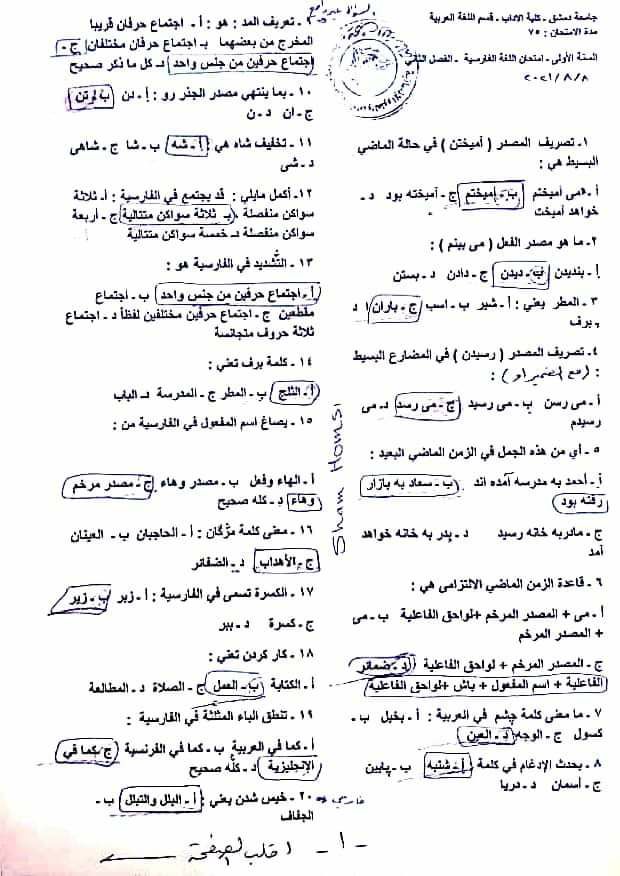 جامعة دمشق - كلية الآداب - قسم اللغة العربية
مدة الامتحان : ٧٥
السنة الأولى - امتحان اللغة الفارسية - الفصل الثاني
٢٠٢١/٨/٨
١. تصريف المصدر ( آميختن ) في حالة الماضي
البسيط هي :
أ. می آمیختم ب- آمیختم ج - آمیخته بود د -
خواهد آمیخت
٢. ما هو مصدر الفعل ( می بینم ) :
أ. بنديدن ب- ديدن ج - دادن د- بستن
٣ . المطر يعني : أ - شير ب - اسب ج - باران د
- برف
٤. تصريف المصدر ( رسيدن ) في المضارع البسيط
: ( مع الضمير او )
أ - می رسن ب - می رسید ج - می رسد د- می
رسیدم
٥ - أي من هذه الجمل في الزمن الماضي البعيد :
أ- أحمد به مدرسه آمده اند ب - سعاد به بازار
رفته بود
ج - مادربه خانه رسید د - پدر به خانه خواهد
آمد
٦ . قاعدة الزمن الماضي الالتزامى هي :
أ - می + المصدر المرخم +لواحق الفاعلية ب - می
+ المصدر المرخم
ج - المصدر المرخم + لواحق الفاعلية د - ضمائر
الفاعلية + اسم المفعول + باش +لواحق الفاعلية
٧ . ما معنى كلمة چشم في العربية : أ - بخيل ب -
كسول ج - الوجه د - العين
٨ . يحدث الإدغام في كلمة أ - شنبه ب - پایین
ج - آسمان د - دریا
السؤال غير واضح
٩ . تعريف المد : هو : أ - اجتماع حرفان قريبا
المخرج من بعضهما ب - اجتماع حرفان مختلفان ج -
إجتماع حرفين من جنس واحد د - كل ما ذكر صحيح
١٠ . بما ينتهي مصدر الجذر رو : أ - دن ب - تن
ج - ان د - ن
١١ . تخفيف شاه هي أ - شه ب - شا ج - شاهى
د - شی
١٢. أكمل مايلي : قد يجتمع في الفارسية : أ - ثلاثة
سواكن منفصلة ب - ثلاثة سواكن متتالية ج - أربعة
سواكن منفصلة د - خمسة سواكن متتالية
١٣ . التشديد في الفارسية هو :
أ - اجتماع حرفين من جنس واحد ب - اجتماع
مقطعين ج - اجتماع حرفين مختلفين لفظاً د - اجتماع
ثلاثة حروف متجانسة
١٤ . كلمة برف تعني :
أ - الثلج ب - المطر ج - المدرسة د - الباب
١٥ . يصاغ اسم المفعول في الفارسية من :
أ - الهاء وفعل ب - مصدر وهاء ج - مصدر مرخم
وهاء د - كله صحيح
١٦ - معنى كلمة مژگان : أ - الحاجبان ب - العينان
ج - الأهداب د - الضفائر
١٧ . الكسرة تسمى في الفارسية : أ - زبر ب - زیر
ج - كسرة د - ببر
١٨ . كار كردن تعني :
أ - الكتابة ب - العمل ج - الصلاة د - المطالعة
١٩ . تنطق الباء المثلثة في الفارسية :
أ - كما في العربية ب - كما في الفرنسية ج - كما في
الإنجليزية د - كله صحيح
٢٠ . خيس شدن يعني : أ - البلل والتبلل ب -
فارسي
الجفاف
Sham Homsi
- ١ - اقلب الصفحة